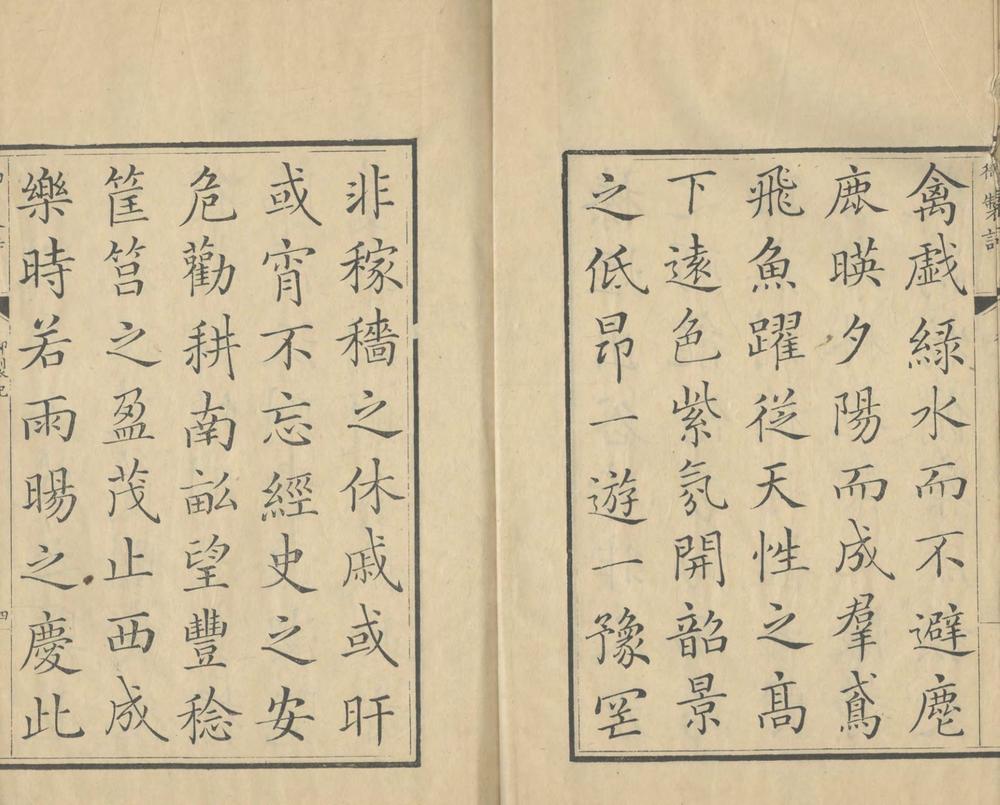 禽戲綠水而不避麀
鹿暎夕陽而成羣鳶
飛魚躍從天性之髙
下遠色紫氛開韶景
之低昂一遊一豫罔
非稼穡之休戚或旰
或宵不忘經史之安
危勸耕南畝望豐稔
筐筥之盈茂止西成
樂時若雨暘之慶此
御製記
四